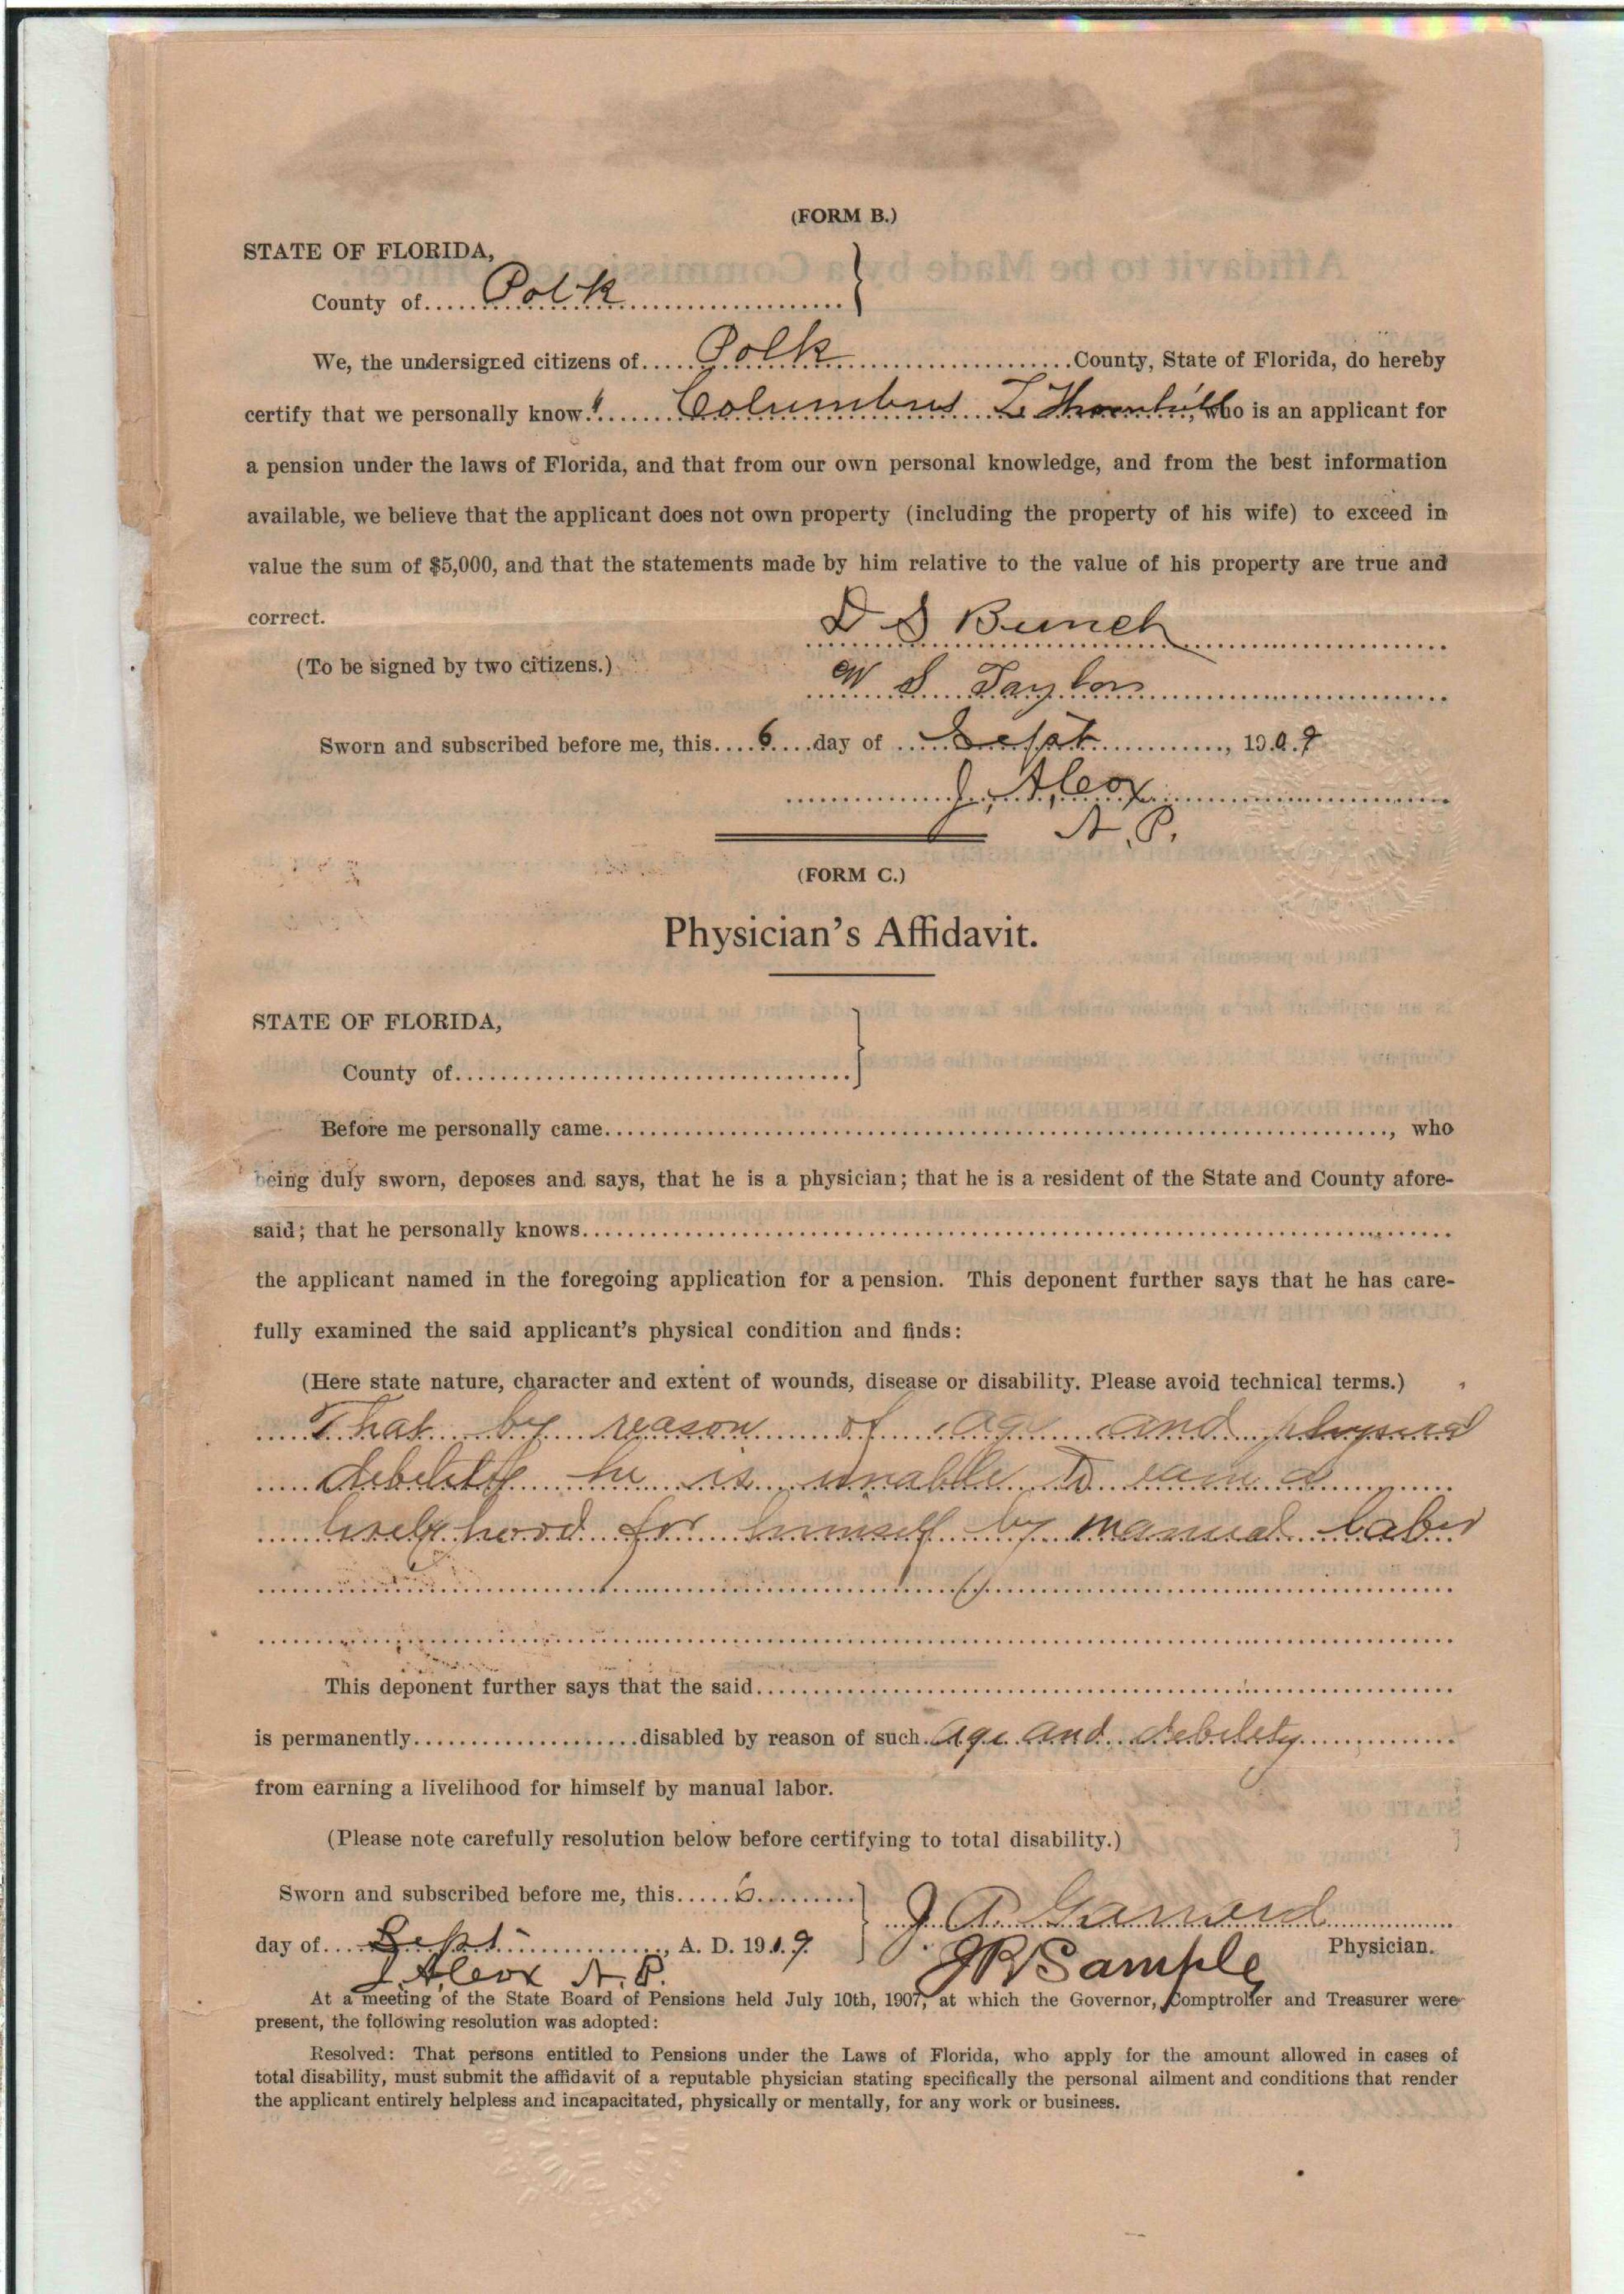 (FORM B.)
STATE OF FLORIDA,
County of..... Polk
We, the undersigned citizens of..... Polk County, State of Florida, do hereby
certify that we personally know Columbus L. Thornhill, who is an applicant for
a pension under the laws of Florida, and that from our own personal knowledge, and from the best information
available, we believe that the applicant does not own property (including the property of his wife) to exceed in
value the sum of $5,000, and that the statements made by him relative to the value of his property are true and
correct.
D S Bunch
(To be signed by two citizens.)
W S Taylor
Sworn and subscribed before me, this.... 6 ....day of Sept, 190.9
J. A. Cox
N. P.
(FORM C.)
Physician's Affidavit.
STATE OF FLORIDA,
County of
Before me personally came, who
being duly sworn, deposes and says, that he is a physician; that he is a resident of the State and County afore-
said; that he personally knows
the applicant named in the foregoing application for a pension. This deponent further says that he has care-
fully examined the said applicant's physical condition and finds:
(Here state nature, character and extent of wounds, disease or disability. Please avoid technical terms.)
That by reason of age and physical
debility he is unable to earn a
livelyhood for himself by manual labor
This deponent further says that the said
is permanently disabled by reason of such age and debility
from earning a livelihood for himself by manual labor.
(Please note carefully resolution below before certifying to total disability.)
Sworn and subscribed before me, this..... 6
J A Garrard
day of.... Sept, A. D. 190.9. Physician.
J. A. Cox N. P. J R Sample
At a meeting of the State Board of Pensions held July 10th, 1907, at which the Governor, Comptroller and Treasurer were
present, the following resolution was adopted:
Resolved: That persons entitled to Pensions under the Laws of Florida, who apply for the amount allowed in cases of
total disability, must submit the affidavit of a reputable physician stating specifically the personal ailment and conditions that render
the applicant entirely helpless and incapacitated, physically or mentally, for any work or business.